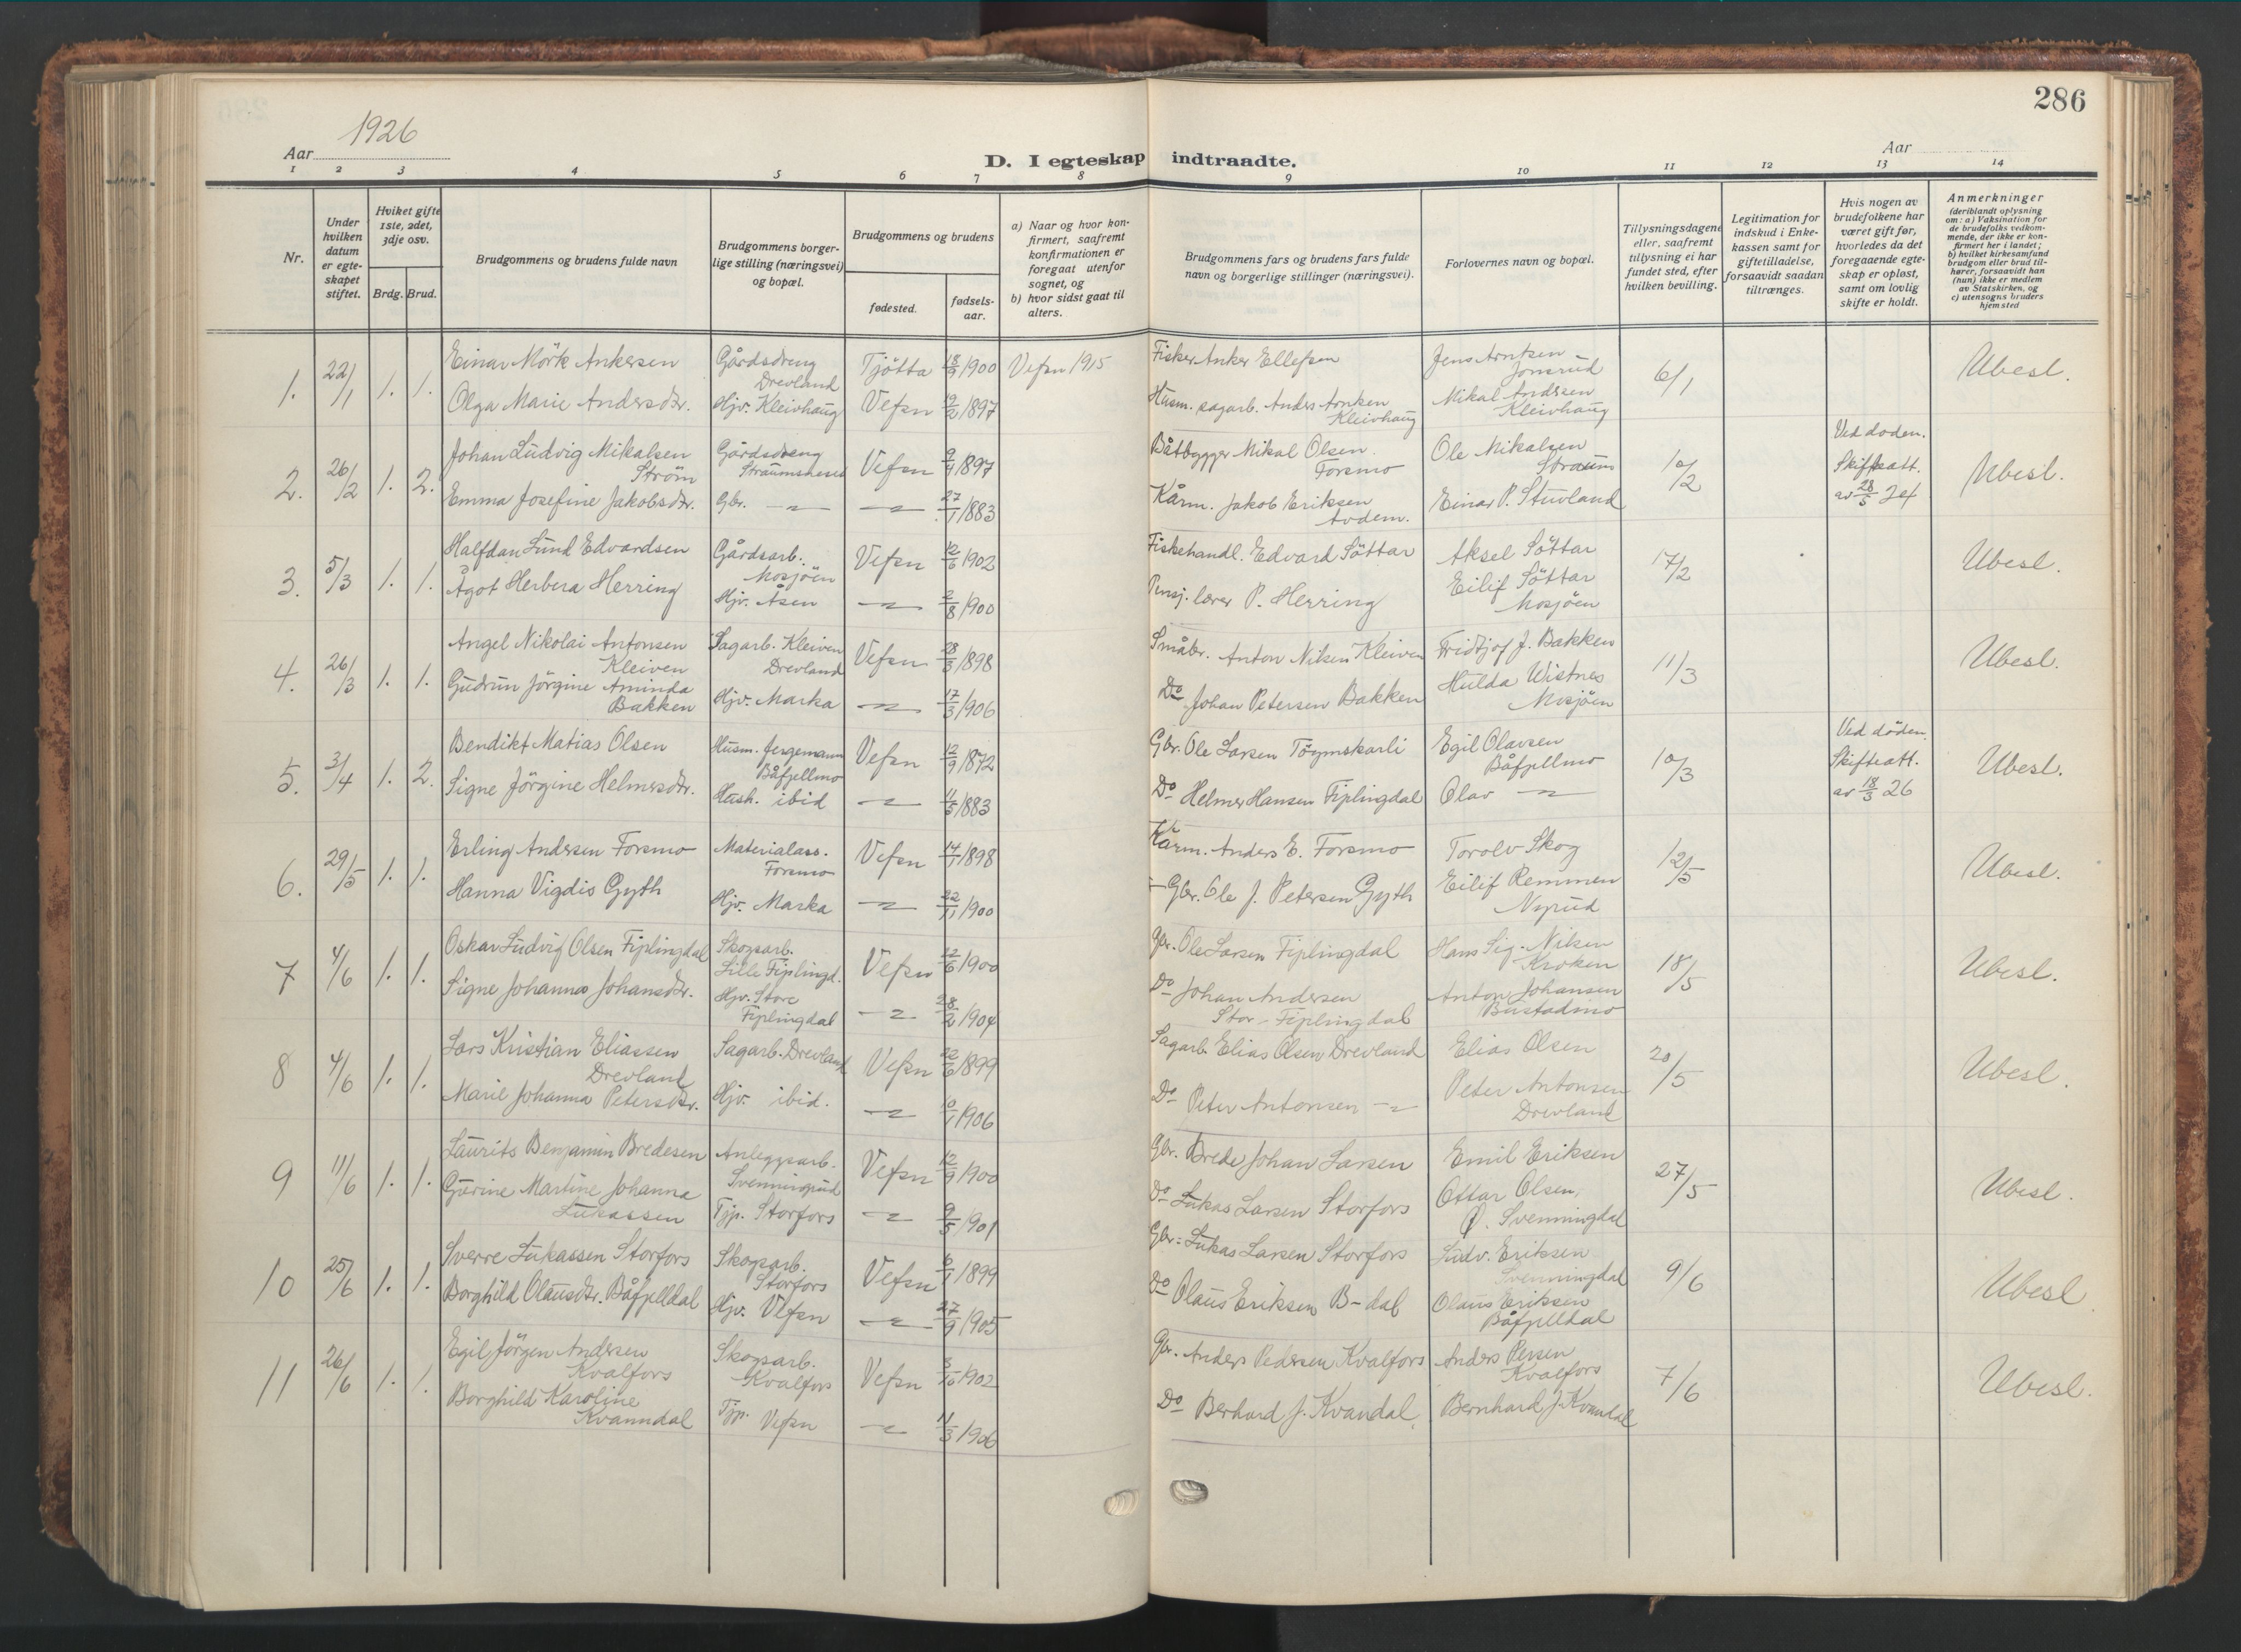 286
1926
Aar
Aar
D. I egteskap indtraadte.
1 2 3 4 5 6 7 8 9 10 11 12 13 14
Nr.
Under hvilken datum er egteskapet stiftet.
Hviket gifte 1ste, 2det, 3dje osv.
Brdg. Brud.
Brudgommens og brudens fulde navn
Brudgommens borgerlige stilling (næringsvei) og bopæl.
Brudgommens og brudens
fødested.
fødselsaar.
a) Naar og hvor konfirmert, saafremt konfirmationen er foregaat utenfor sognet, og
b) hvor sidst gaat til alters.
Brudgommens fars og brudens fars fulde navn og borgerlige stillinger (næringsvei).
Forlovernes navn og bopæl.
Tillysningsdagene eller, saafremt tillysning ei har fundet sted, efter hvilken bevilling.
Legitimation for indskud i Enkekassen samt for giftetilladelse, forsaavidt saadan tiltrænges.
Hvis nogen av brudefolkene har været gift før, hvorledes da det foregaaende egteskap er opløst, samt om lovlig skifte er holdt.
Anmerkninger
(deriblandt oplysning om: a) Vaksination for de brudefolks vedkommende, der ikke er konfirmert her i landet; b) hvilket kirkesamfund brudgom eller brud tilhører, forsaavidt han (hun) ikke er medlem av Statskirken, og c) utensogns bruders hjemsted
1. 22/1 1. 1.
Einar Mörk Ankersen
Gårdsdreng Drevland
Tjötta 18/9 1900 Vefsn 1915
Fisker Anker Ellefsen
Jens Arntsen Jonsrud
6/1
Ubesl.
Olga Marie Andersdtr.
Hjv. Kleivhaug
Vefsn 19/2 1897
Husm. sagarb. Anders Arnken Kleivhaug
Mikal Andrsen Kleivhaug
2. 26/2 1. 2.
Johan Ludvig Mikalsen Ström
Gårdsdreng
Vefsn 9/4 1897
Båtbygger Mikal Olsen Forsmo
Ole Mikalsen Straum
10/2
Ved doden. Skifteatt. av 28/5 24
Ubesl.
Emma Josefine Jakobsdtr.
Gbr. —"—
—"— 27/1 1883
Kårm. Jakob Eriksen
Einar P. Stuvland
3. 5/3 1. 1.
Halfdan Lund Edvardsen
Gårdsarb. Mosjöen
Vefsn 12/6 1902
Fiskehandl. Edvard Söttar
Aksel Söttar
17/2
Ubesl.
Ågot Herbera Herring
Hjv. Åsen
—"— 2/8 1900
Pensj. lærer P. Herring
Eilif Söttar Mosjöen
4. 26/3 1. 1.
Angel Nikolai Antonsen Kleiven
Sagarb. Kleiven Drevland
Vefsn 28/3 1898
Småbr. Anton Nilsen Kleiven
Fridtjof J. Bakken
11/3
Ubesl.
Gudrun Jörgine Aminda Bakken
Hjv. Marka
—"— 17/3 1906
Do Johan Petersen Bakken
Hulda Wistnes Mosjöen
5. 3/4 1. 2.
Bendikt Matias Olsen
Husm. fergemann Båfjellmo
Vefsn 12/9 1872
Gbr. Ole Larsen
Egil Olavsen Båfjellmo
10/3
Ved döden. Skifteatt. av 18/3 26
Ubesl.
Signe Jörgine Helmersdtr.
Hush. ibid
—"— 11/5 1883
Do Helmer Hansen Fiplingdal
Olav —"—
6. 29/5 1. 1.
Erling Andersen Forsmo
Materialass. Forsmo
Vefsn 14/1 1898
Kårm. Anders E. Forsmo
Torolv Skog
12/5
Ubesl.
Hanna Vigdis Gyth
Hjv. Marka
—"— 22/11 1900
Gbr. Ole J. Petersen Gyth
Eilif Remmen Nyrud
7 4/6 1. 1.
Oskar Ludvig Olsen Fiplingdal
Skogsarb. Lille Fiplingd.
Vefsn 22/6 1900
Gbr. Ole Larsen Fiplingdal
Hans Sig. Nilsen Kroken
18/5
Ubesl.
Signe Johanna Johansdtr.
Hjv. Store Fiplingdal
—"— 28/2 1904
Do Johan Andersen Stor-Fiplingdal
Anton Johansen Bustadmo
8 4/6 1. 1.
Lars Kristian Eliassen Drevland
Sagarb. Drevland
Vefsn 22/6 1899
Sagarb. Elias Olsen Drevland
Elias Olsen
20/5
Ubesl.
Marie Johanna Petersdtr.
Hjv. ibid.
—"— 1906
Do Peter Antonsen —"—
Peter Antonsen Drevland
9 11/6 1. 1.
Laurits Benjamin Bredesen
Anleggsarb. Svenningrud
Vefsn 12/9 1900
Gbr. Brede Johan Larsen
Emil Eriksen
27/5
Ubesl.
Gurine Martine Johanna Lukassen
Tjp. Storfors
—"— 9/5 1901
Do Lukas Larsen Storfors
Ottar Olsen, Ø. Svenningdal
10 25/6 1. 1.
Sverre Lukassen Storfors
Skogsarb. Storfors
Vefsn 6/1 1899
Gbr. Lukas Larsen Storfors
Ludv. Eriksen Svenningdal
9/6
Ubesl.
Borghild Olausdtr. Båfjelldal
Hjv. Vefsn
—"— 27/9 1905
Do Olaus Eriksen B-dal
Olaus Eriksen Båfjelldal
11 26/6 1. 1.
Egil Jörgen Andersen Kvalfors
Skogsarb. Kvalfors
Vefsn 3/10 1902
Gbr. Anders Pedersen Kvalfors
Anders Persen Kvalfors
7/6
Ubesl.
Borghild Karoline Kvanndal
Tjp. Vefsn
—"— 11/3 1906
Do Berhard J. Kvandal,
Bernhard J. Kvandal